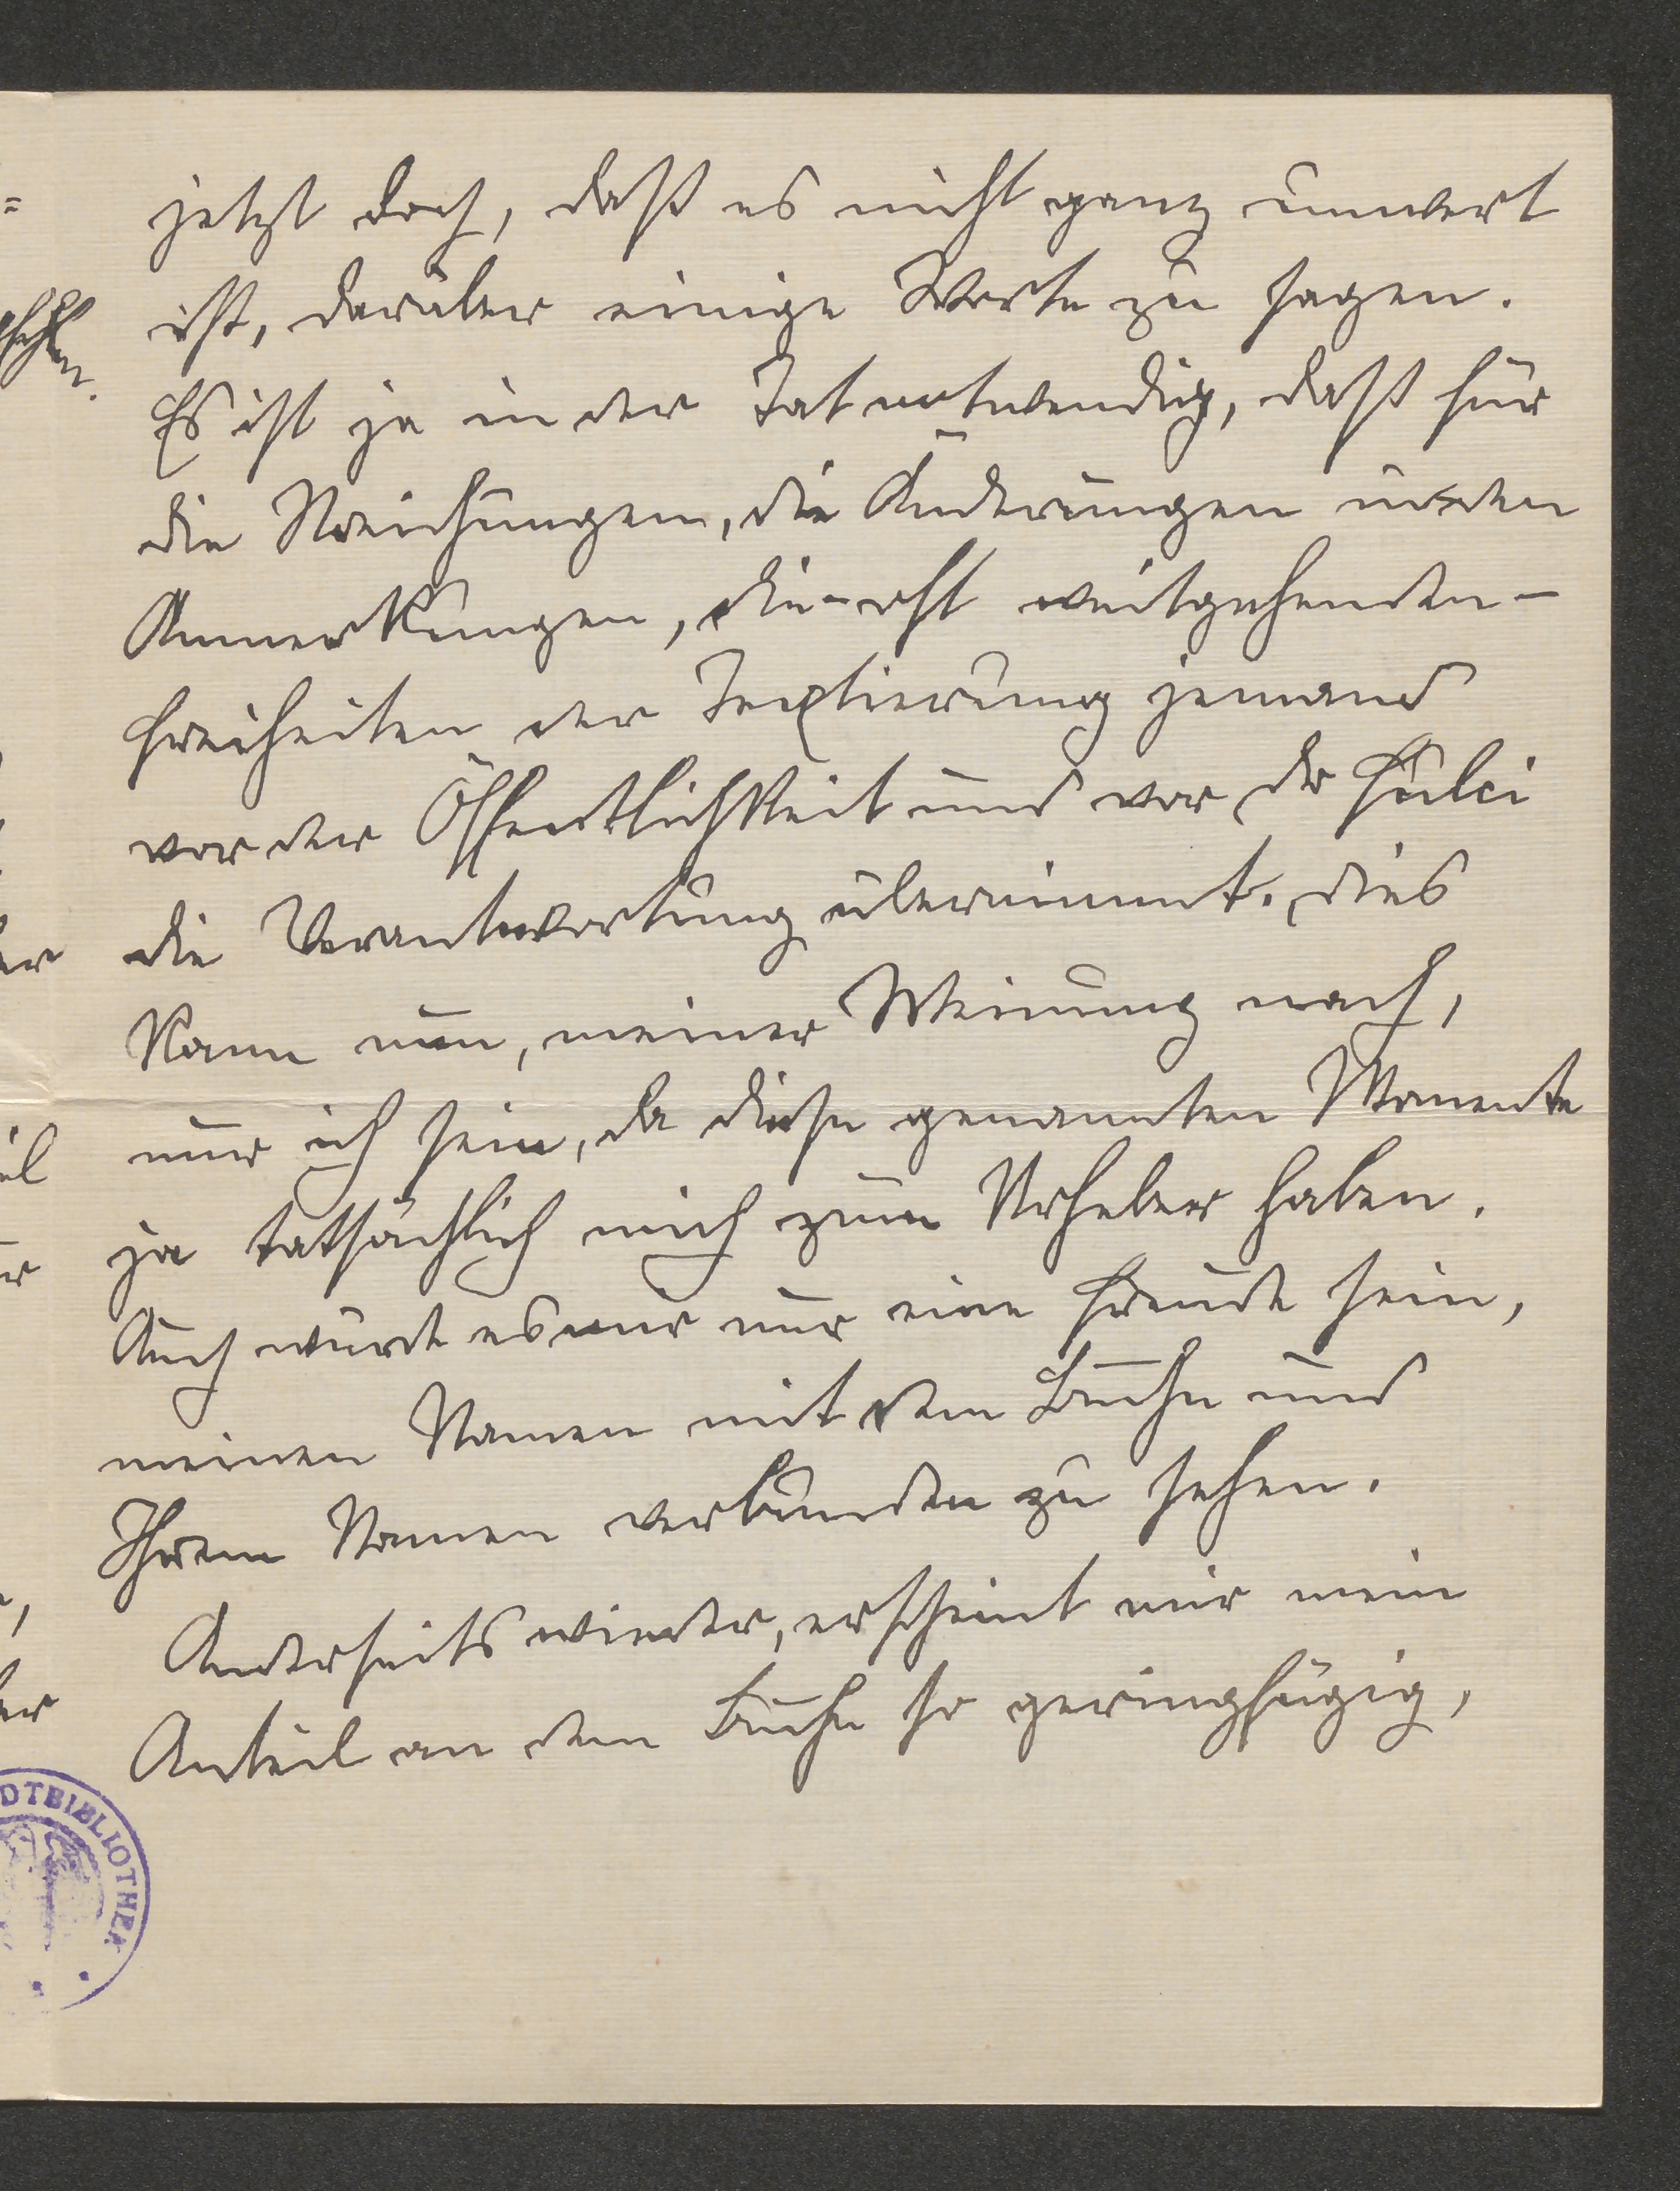 jetzt doch, daß es nicht ganz unwert
ist, darüber einige Worte zu sagen.
Es ist ja in der Tat notwendig, daß für
die Streichungen, die Änderungen in den
Anmerkungen, die – oft weitgehenden –
Freiheiten der Textierung jemand
vor der Öffentlichkeit und vor der
die Verantwortung übernimmt. Dies
kann nun, meiner Meinung nach,
nur ich sein, da diese genannten Momente
ja tatsächlich mich zum Urheber haben.
Auch würde es mir nur eine Freude sein,
meinen Namen mit dem Buche und
Ihrem Namen verbunden zu sehen.
Anderseits wieder, erscheint mir mein
Anteil an dem Buche so geringfügig,
DTBIBLIOTHEK